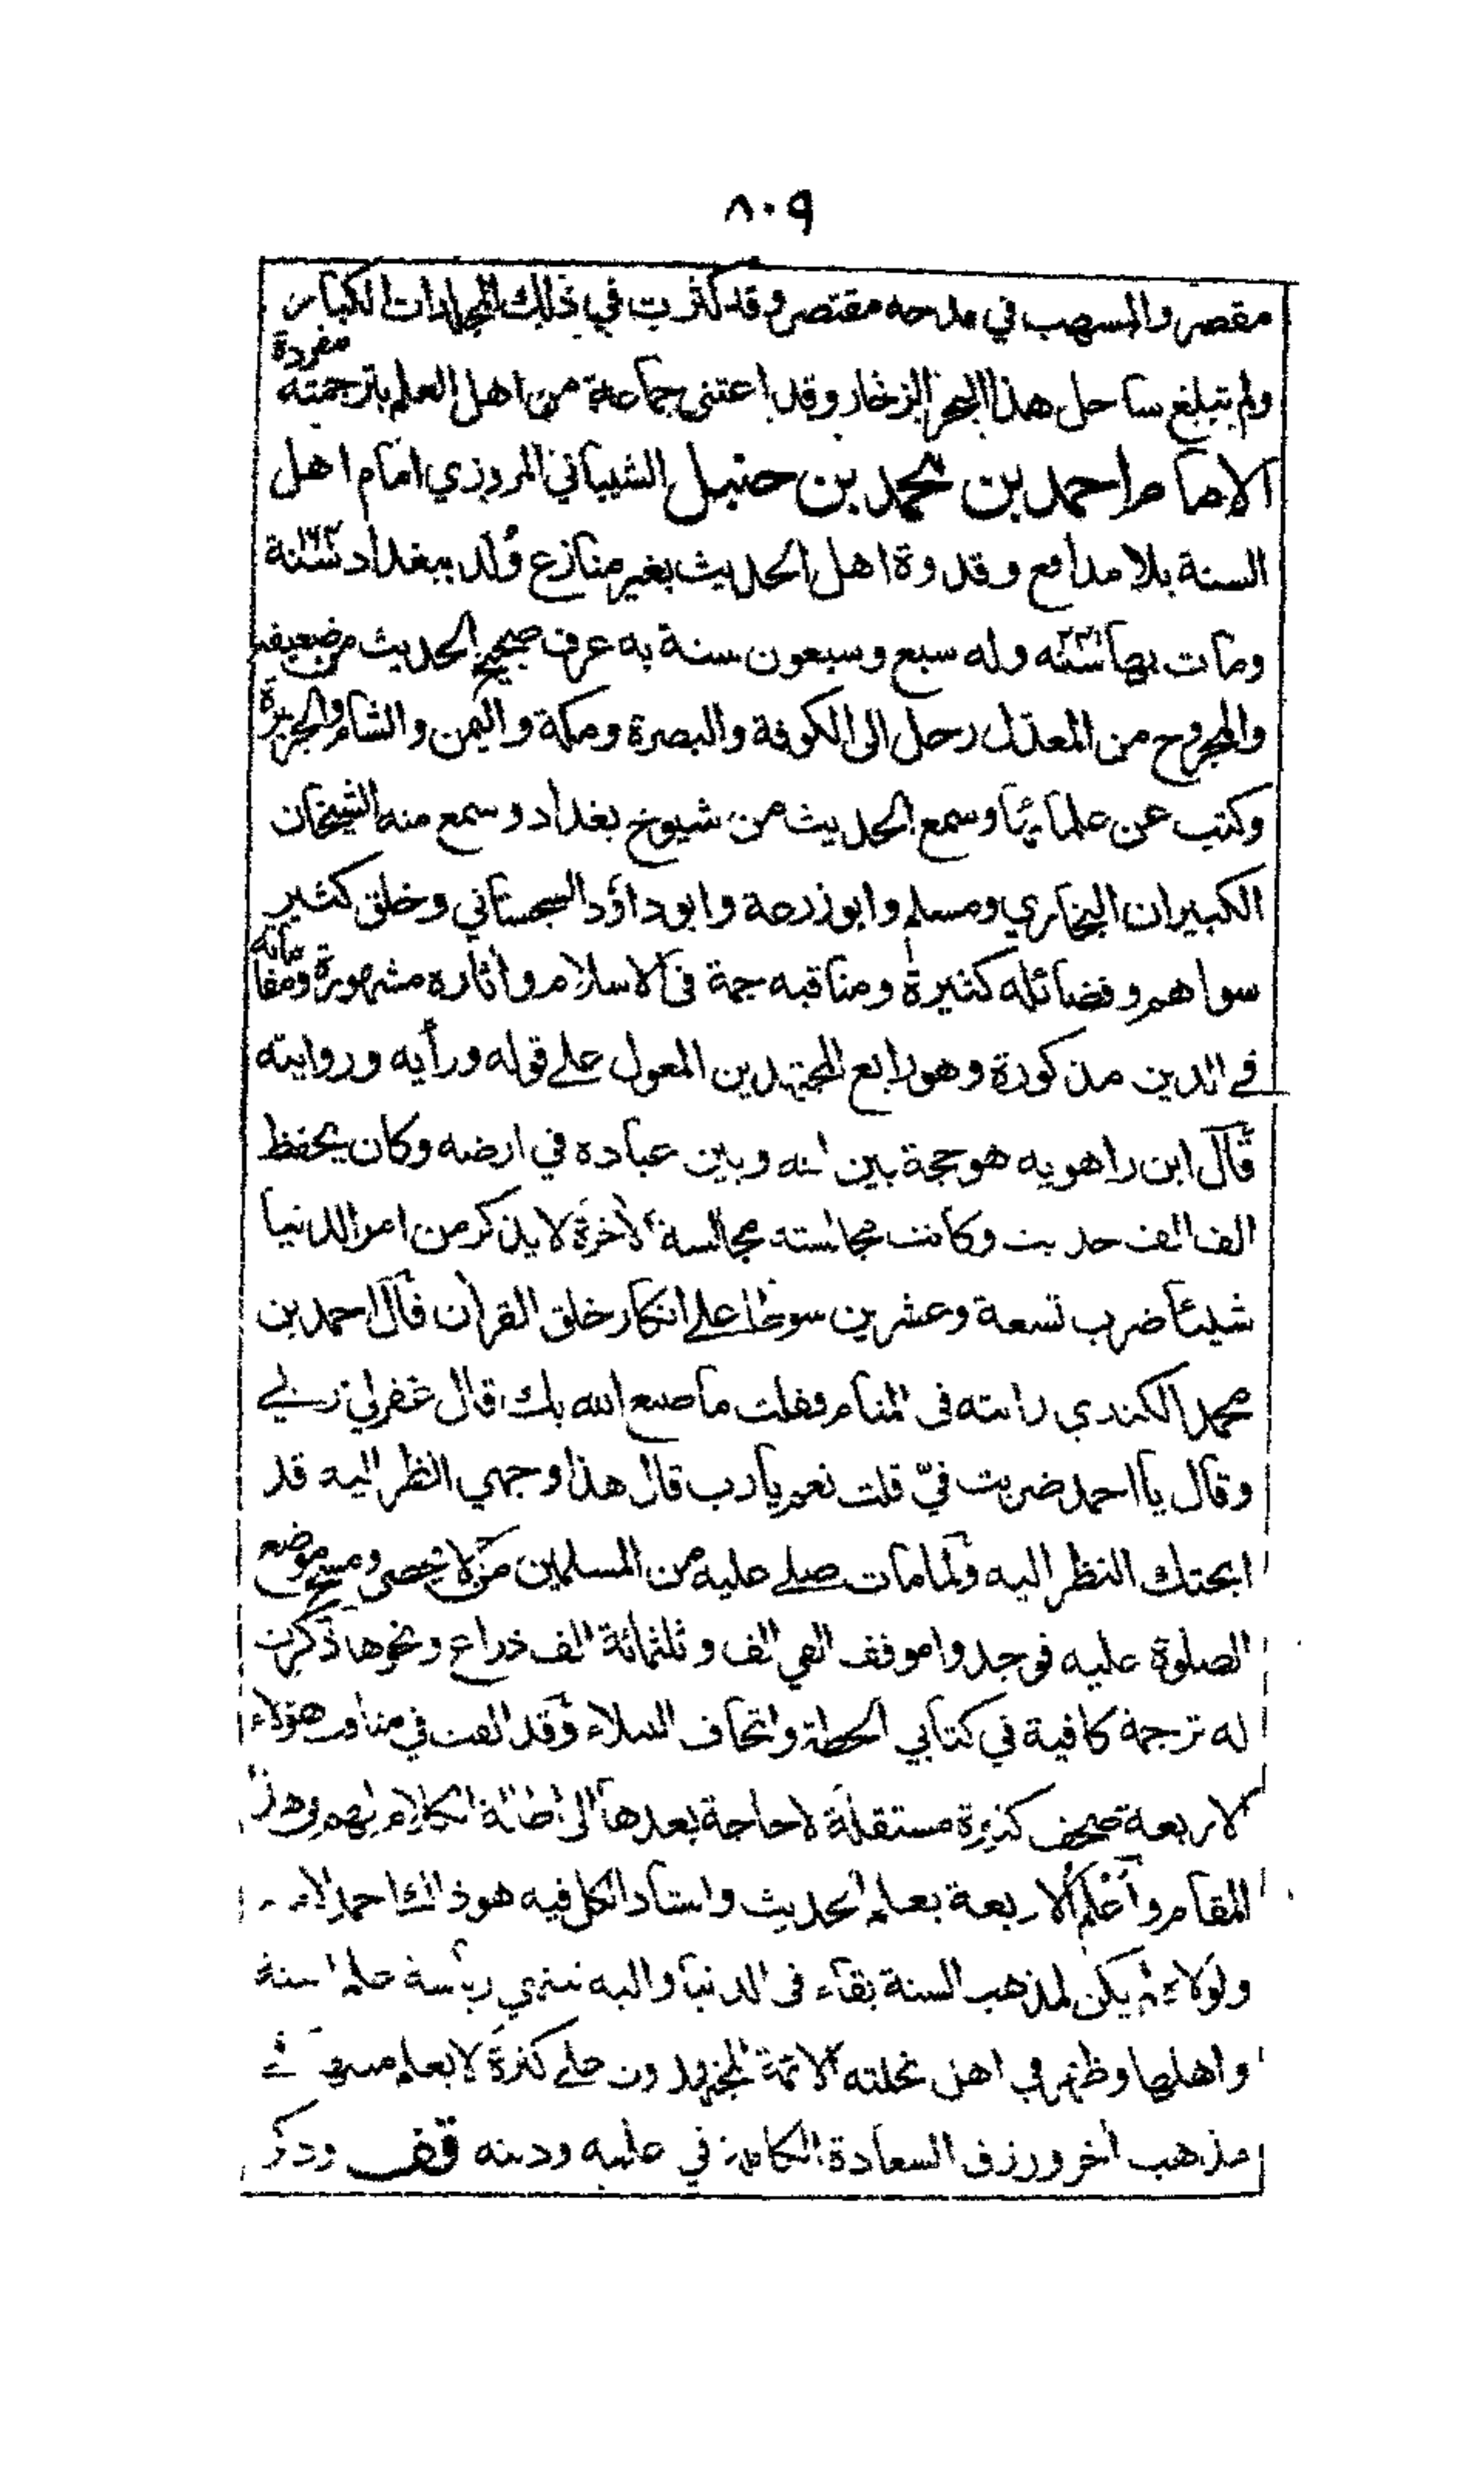 ٨٠٩
مقصر والمسهب في مدحه مقتصر وقد كثرت في ذلك المجلدات الكبار
ولم تبلغ ساحل هذا البحر الزخار وقد اعتنى جماعة من اهل العلم بترجمته مفردة
الامام احمد بن محمد بن حنبل الشيباني المروزي امام اهل
السنة بلا مدافع وقدوة اهل الحديث بغير منازع ولد ببغداد سنة ١٦٤
ومات بها سنة وله سبع وسبعون سنة به عرف صحيح الحديث من ضعيفه
والمجروح من المعدل رحل الى الكوفة والبصرة ومكة واليمن والشام والجزيرة
وكتب عن علمائها وسمع الحديث من شيوخ بغداد وسمع منه الشيخان
الكبيران البخاري ومسلم وابو زرعة وابو داؤد السجستاني وخلق كثير
سواهم وفضائله كثيرة ومناقبه جمة في الاسلام واثاره مشهورة ومقاماته
في الدين مذكورة وهو رابع المجتهدين المعول على قوله ورأيه وروايته
قال ابن راهويه هو حجة بين الله وبين عباده في ارضه وكان يحفظ
الف الف حديث وكانت مجالسته مجالسة الأخرة لا يذكر من امر الدنيا
شيئا ضرب تسعة وعشرين سوطا على انكار خلق القرأن قال احمد بن
محمد الكندي رايته في المنام فقلت ما صنع الله بك قال غفر لي ربي
وقال يا احمد ضربت فيّ قلت نعم يا رب قال هذا وجهي انظر اليه قد
ابحتك النظر اليه ولما مات صلى عليه من المسلمين من لا يحصى ومسح موضع
الصلوة عليه فوجدوا موقف الفي الف وثلثمائة الف ذراع ونحوها ذكرت
له ترجمة كافية في كتابي الحطة واتحاف النبلاء وقد الفت في مناقب هؤلاء
الاربعة صحف كثيرة مستقلة لا حاجة بعدها الى اطالة الكلام بهم في هذا
المقام وأعلم الاربعة بعلم الحديث واستاد الكل فيه هو ذلك احمد
ولولاه لم يكن لمذهب السنة بقاء في الدنيا واليه تنتهي رياسة علم السنة
واهلها وظهر في اهل نحلته الائمة المجتهدون على كثرة لا يعلم في
مذهب أخر ورزق السعادة الكاملة في علمه ودينه قف وذكر